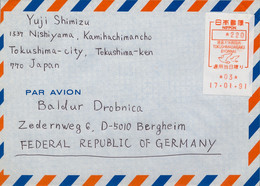 Yuji Shimizu
1337 Nishiyama, Kamihachimancho
Tokushima-city, Tokushima-ken
770 Japan
日本郵便
NIPPON
*220
通用当日限り
*03*
17-01-91
PAR AVION
Baldur Drobnica
Zedernweg 6, D-5010 Bergheim
FEDERAL REPUBLIC OF GERMANY